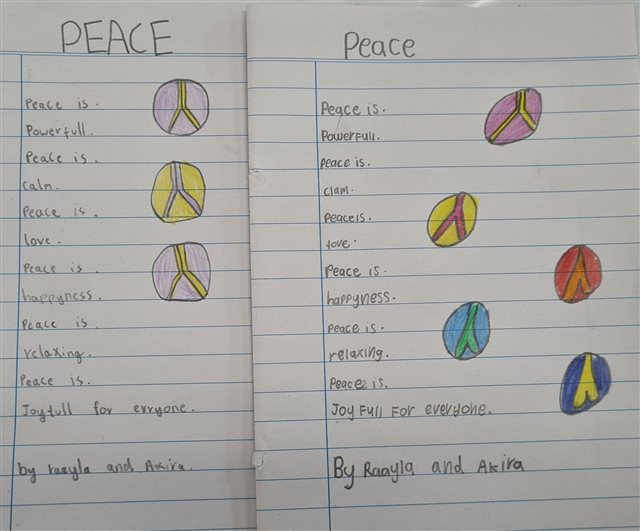 PEACE
Peace is.
Powerfull.
Peace is.
calm.
Peace is.
love.
Peace is.
happyness.
Peace is.
relaxing.
Peace is.
Joyfull for evryone.
by raayla and Akira.
Peace
Peace is.
Powerfull.
Peace is.
clam.
Peace is.
love.
Peace is.
happyness.
Peace is.
relaxing.
Peace is.
Joy Full For everyone.
By Raayla and Akira